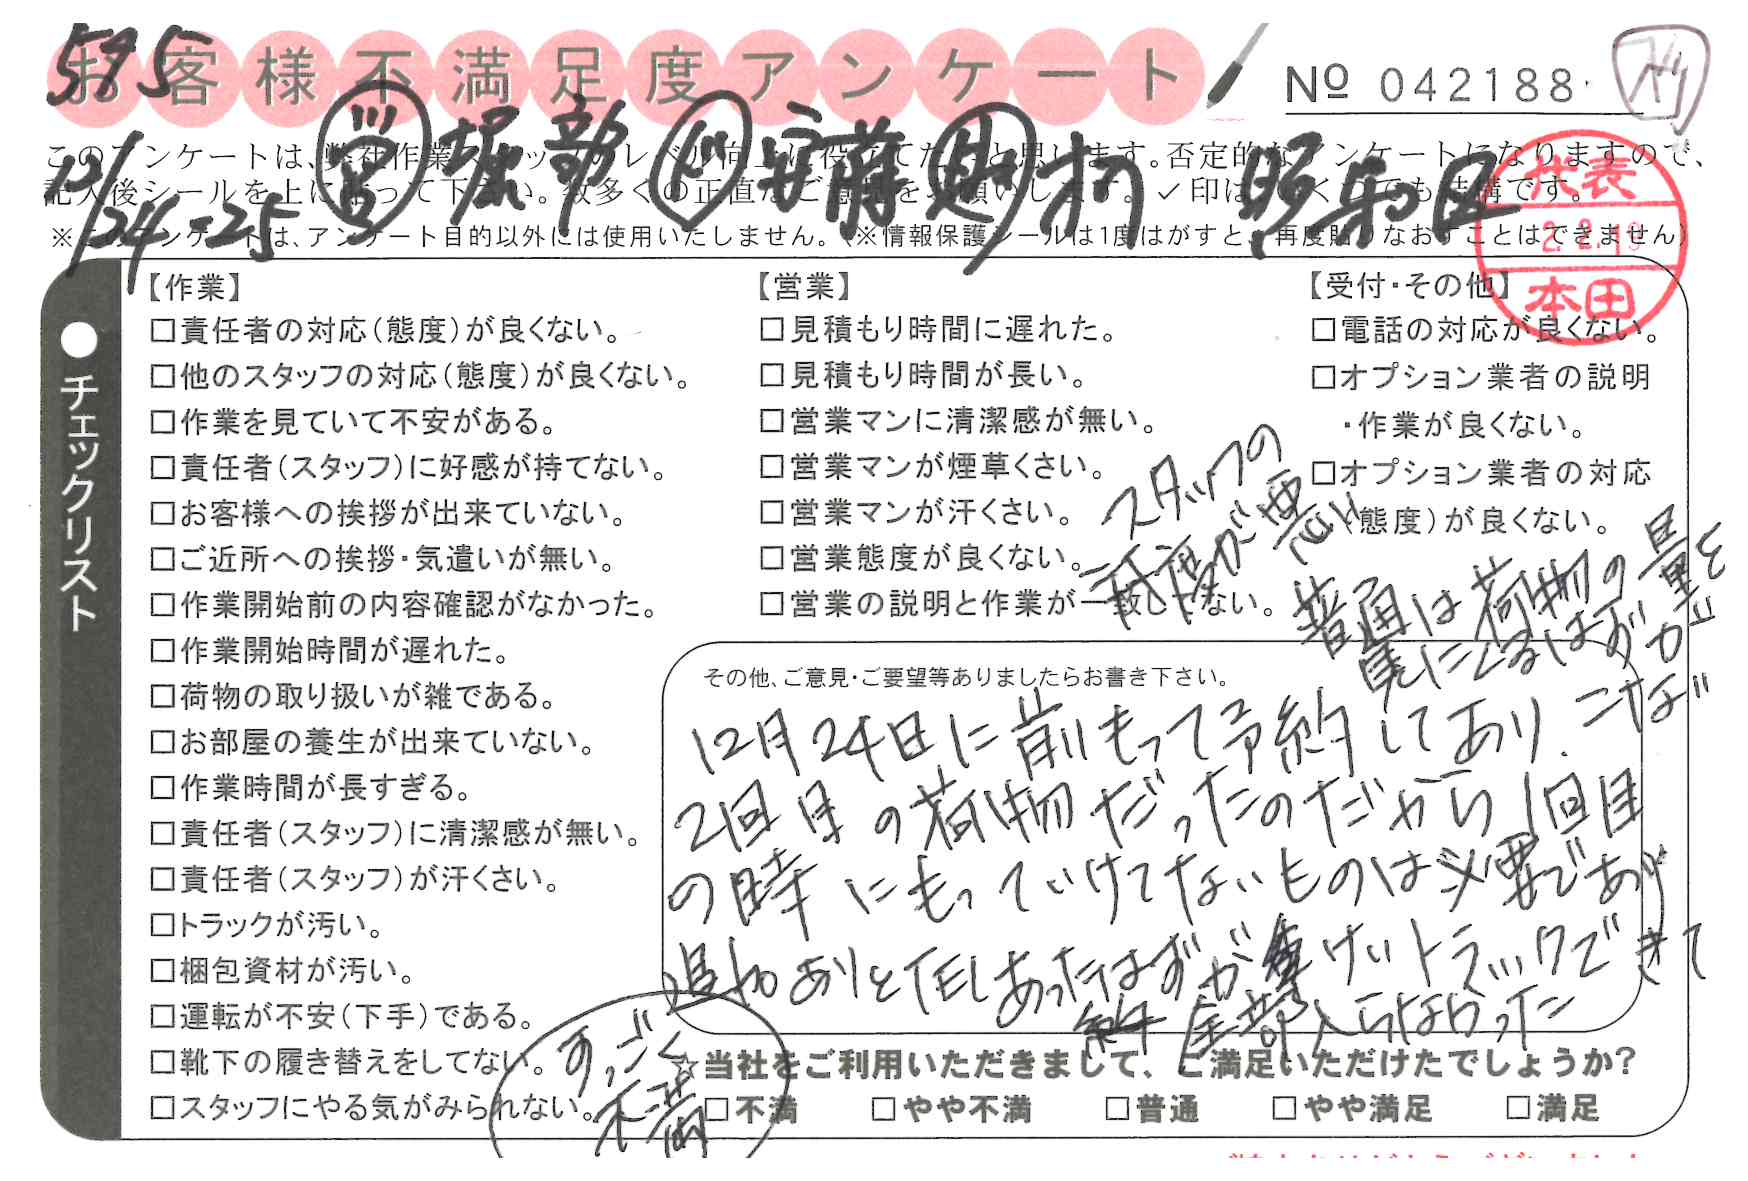 595
お客様不満足度アンケート
№ 042188
このアンケートは、弊社作業スタッフのレベル向上に役立てたいと思います。否定的なアンケートになりますので、
記入後シールを上に貼って下さい。数多くの正直なご意見をお願いします。✓印はいくつでも結構です。
※このアンケートは、アンケート目的以外には使用いたしません。(※情報保護シールは1度はがすと、再度貼りなおすことはできません)
12/24-25 堀部 安藤 昭和区
代表
2.2.19
本田
●チェックリスト
【作業】
□責任者の対応(態度)が良くない。
□他のスタッフの対応(態度)が良くない。
□作業を見ていて不安がある。
□責任者(スタッフ)に好感が持てない。
□お客様への挨拶が出来ていない。
□ご近所への挨拶・気遣いが無い。
□作業開始前の内容確認がなかった。
□作業開始時間が遅れた。
□荷物の取り扱いが雑である。
□お部屋の養生が出来ていない。
□作業時間が長すぎる。
□責任者(スタッフ)に清潔感が無い。
□責任者(スタッフ)が汗くさい。
□トラックが汚い。
□梱包資材が汚い。
□運転が不安(下手)である。
□靴下の履き替えをしてない。
□スタッフにやる気がみられない。
【営業】
□見積もり時間に遅れた。
□見積もり時間が長い。
□営業マンに清潔感が無い。
□営業マンが煙草くさい。
□営業マンが汗くさい。
□営業態度が良くない。
□営業の説明と作業が一致してない。
【受付・その他】
□電話の対応が良くない。
□オプション業者の説明
・作業が良くない。
□オプション業者の対応
(態度)が良くない。
スタッフの
態度が悪い
普通は荷物の量を
見にくるはずが
こなず
その他、ご意見・ご要望等ありましたらお書き下さい。
12月24日に前もって予約してあり、
2回目の荷物だったのだから1回目
の時にもっていけてないものは必要であり
追加ありとTELしあったはずが軽トラックできて
全部入らなかった
すっごく
不満
☆当社をご利用いただきまして、ご満足いただけたでしょうか?
□不満 □やや不満 □普通 □やや満足 □満足